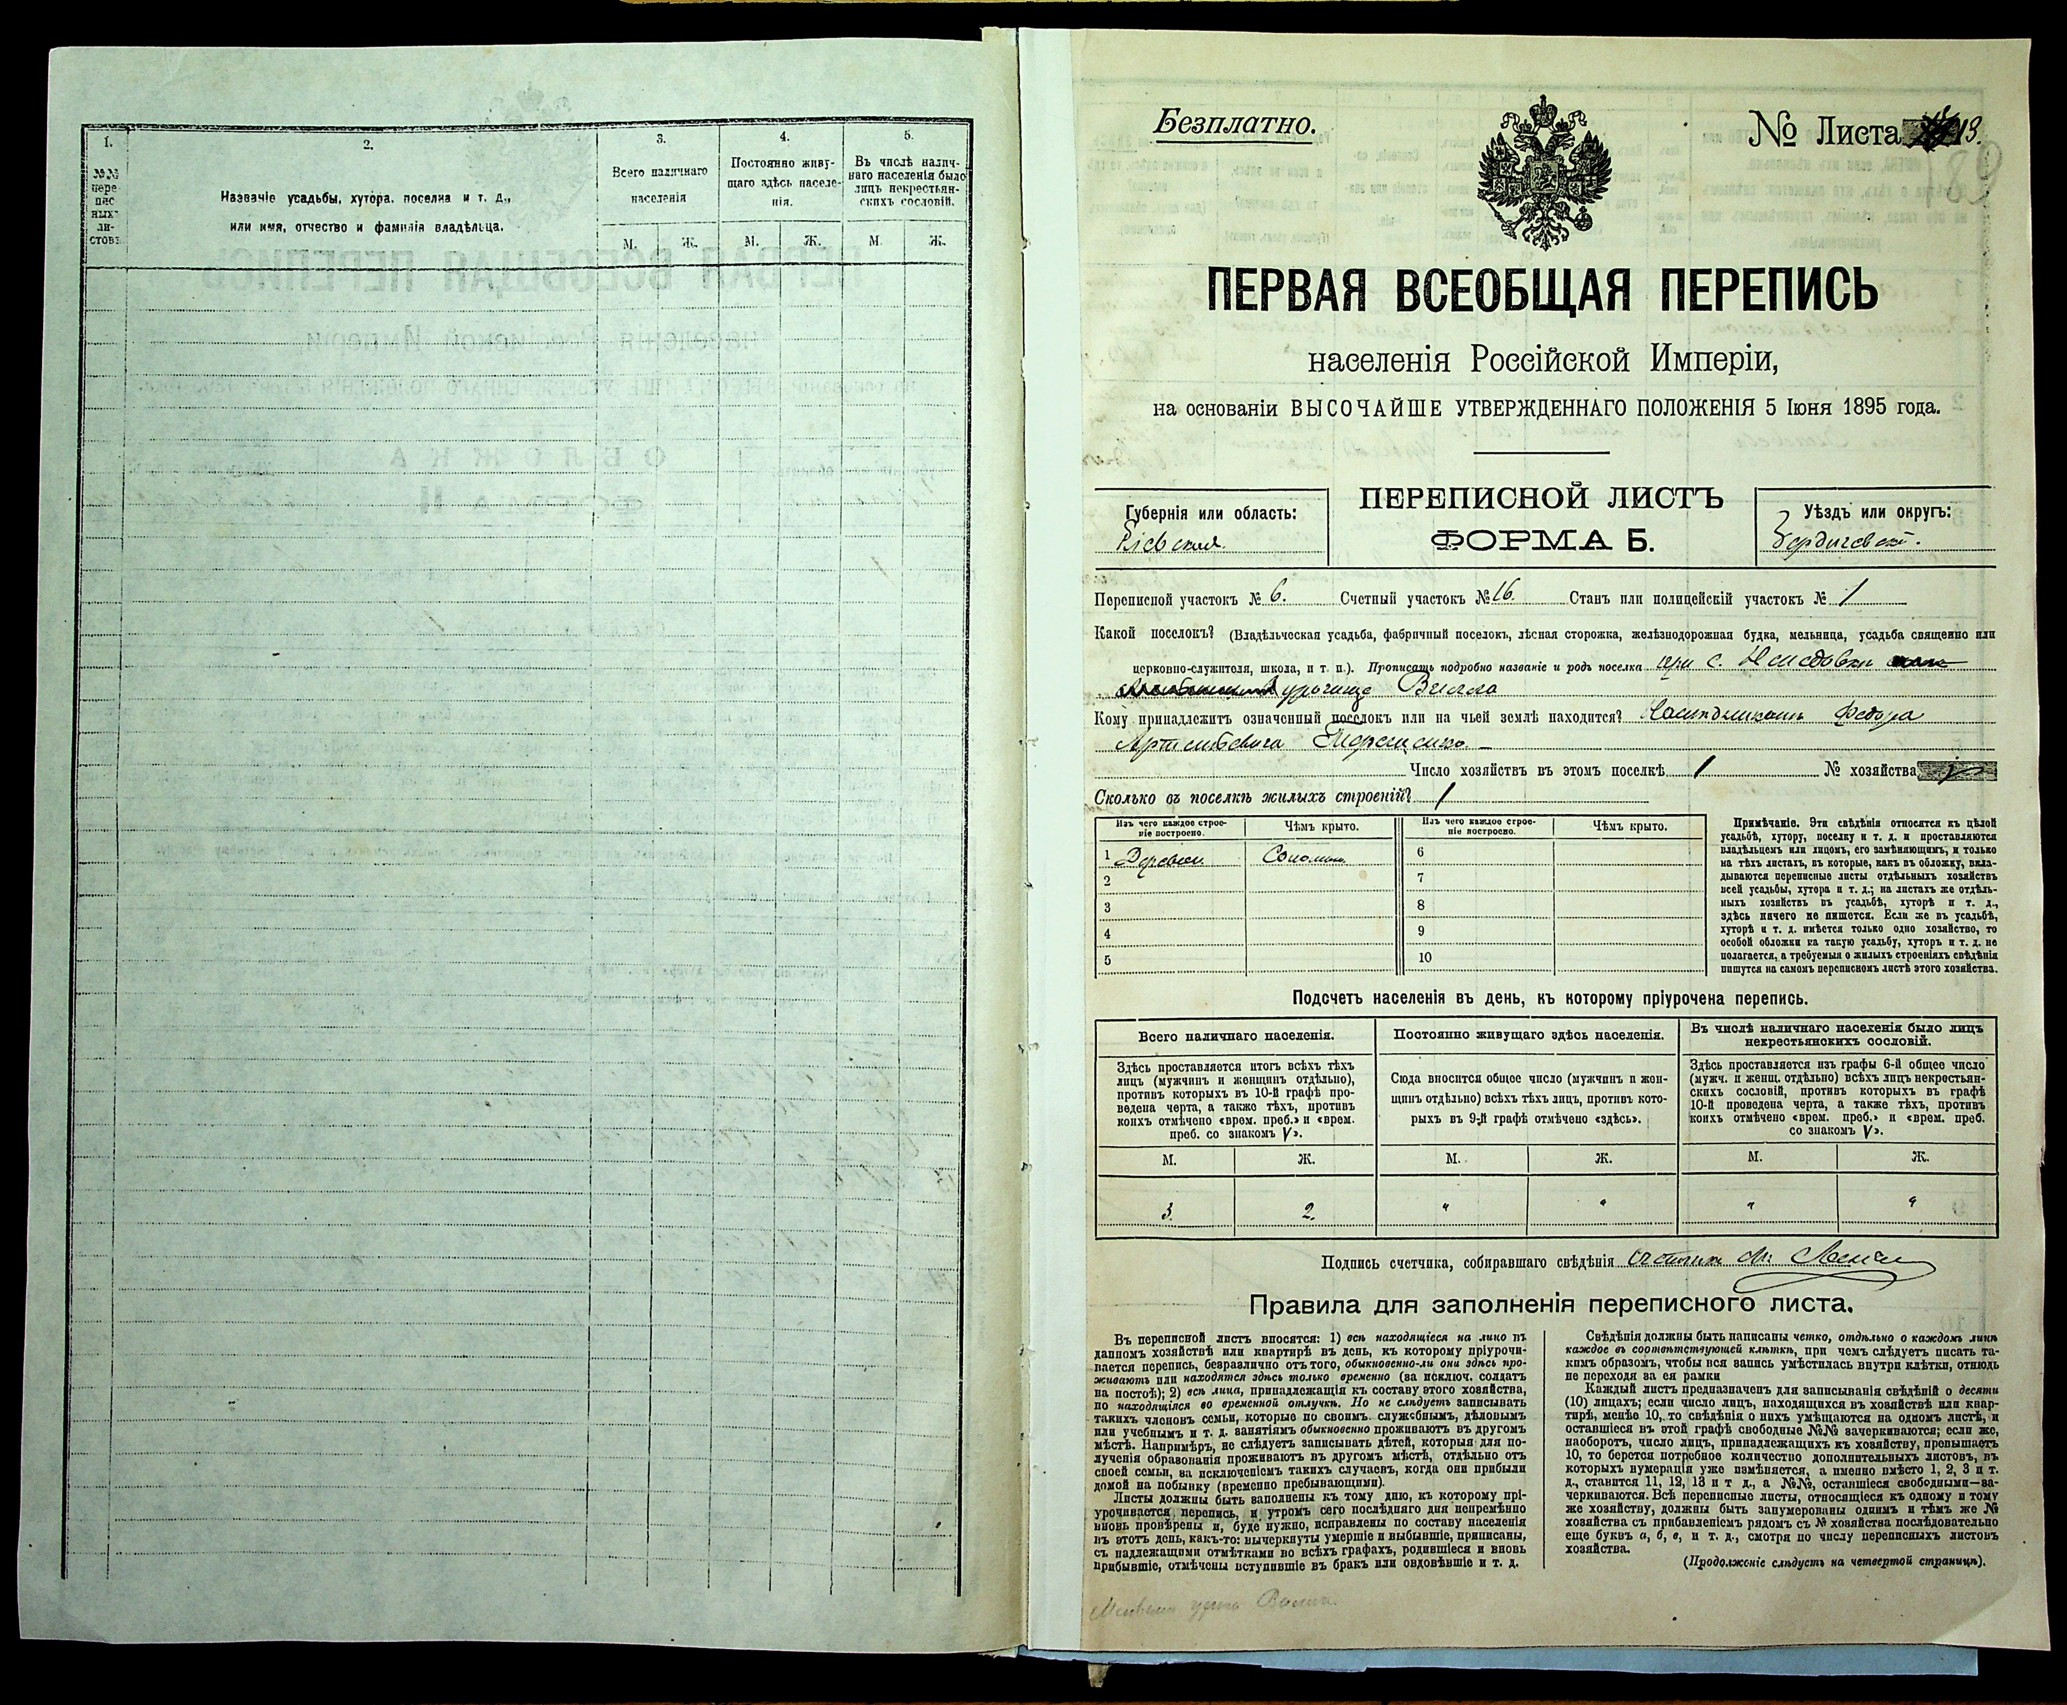 1.
2.
3.
4.
5.
№№ пере-
пис
ныхъ
ли-
стовъ
Названіе усадьбы, хутора, поселка и т. д.,
или имя, отчество и фамилія владѣльца.
Всего наличнаго
населенія
Постоянно живу-
щаго здѣсь населе-
нія.
Въ числѣ налич-
наго населенія было
лицъ некрестьян-
скихъ сословій.
М. Ж. М. Ж. М. Ж.
Безплатно.
№ Листа 13.
ПЕРВАЯ ВСЕОБЩАЯ ПЕРЕПИСЬ
населенія Россійской Имперіи,
на основаніи ВЫСОЧАЙШЕ УТВЕРЖДЕННАГО ПОЛОЖЕНІЯ 5 Іюня 1895 года.
Губернія или область:
Кіевская.
ПЕРЕПИСНОЙ ЛИСТЪ
ФОРМА Б.
Уѣздъ или округъ:
Бердичевскі.
Переписной участокъ № 6. Счетный участокъ № 16. Станъ или полицейскій участокъ № 1
Какой поселокъ? (Владѣльческая усадьба, фабричный поселокъ, лѣсная сторожка, желѣзнодорожная будка, мельница, усадьба священно или
церковно-служителя, школа, и т. п.). Прописать подробно названіе и родъ поселка при с.
урочище
Кому принадлежитъ означенный поселокъ или на чьей землѣ находится? Федора
Терещенко
Число хозяйствъ въ этомъ поселкѣ 1 № хозяйства
Сколько въ поселкѣ жилыхъ строеній? 1
Изъ чего каждое строе-
ніе построено.
Чѣмъ крыто.
Изъ чего каждое строе-
ніе построено.
Чѣмъ крыто.
1 Дерев. Солом. 6
2 7
3 8
4 9
5 10
Примѣчаніе. Эти свѣдѣнія относятся къ цѣлой
усадьбѣ, хутору, поселку и т. д. и проставляются
владѣльцемъ или лицомъ, его замѣняющимъ, и только
на тѣхъ листахъ, въ которые, какъ въ обложку, вкла-
дываются переписные листы отдѣльныхъ хозяйствъ
всей усадьбы, хутора и т. д.; на листахъ же отдѣль-
ныхъ хозяйствъ въ усадьбѣ, хуторѣ и т. д.,
здѣсь ничего не пишется. Если же въ усадьбѣ,
хуторѣ и т. д. имѣется только одно хозяйство, то
особой обложки на такую усадьбу, хуторъ и т. д. не
полагается, а требуемыя о жилыхъ строеніяхъ свѣдѣнія
пишутся на самомъ переписномъ листѣ этого хозяйства.
Подсчетъ населенія въ день, къ которому пріурочена перепись.
Всего наличнаго населенія.
Здѣсь проставляется итогъ всѣхъ тѣхъ
лицъ (мужчинъ и женщинъ отдѣльно),
противъ которыхъ въ 10-й графѣ про-
ведена черта, а также тѣхъ, противъ
коихъ отмѣчено «врем. преб.» и «врем.
преб. со знакомъ V».
Постоянно живущаго здѣсь населенія.
Сюда вносится общее число (мужчинъ и жен-
щинъ отдѣльно) всѣхъ тѣхъ лицъ, противъ кото-
рыхъ въ 9-й графѣ отмѣчено «здѣсь».
Въ числѣ наличнаго населенія было лицъ
некрестьянскихъ сословій.
Здѣсь проставляется изъ графы 6-й общее число
(мужч. и женщ. отдѣльно) всѣхъ лицъ некрестьян-
скихъ сословій, противъ которыхъ въ графѣ
10-й проведена черта, а также тѣхъ, противъ
коихъ отмѣчено «врем. преб.» и «врем. преб.
со знакомъ V».
М. Ж. М. Ж. М. Ж.
3. 2. " " " "
Подпись счетчика, собиравшаго свѣдѣнія
Правила для заполненія переписного листа.
Въ переписной листъ вносятся: 1) всѣ находящіеся на лицо въ
данномъ хозяйствѣ или квартирѣ въ день, къ которому пріурочи-
вается перепись, безразлично отъ того, обыкновенно-ли они здѣсь про-
живаютъ или находятся здѣсь только временно (за исключ. солдатъ
на постоѣ); 2) всѣ лица, принадлежащія къ составу этого хозяйства,
но находящіяся во временной отлучкѣ. Но не слѣдуетъ записывать
такихъ членовъ семьи, которые по своимъ служебнымъ, дѣловымъ
или учебнымъ и т. д. занятіямъ обыкновенно проживаютъ въ другомъ
мѣстѣ. Напримѣръ, не слѣдуетъ записывать дѣтей, которыя для по-
лученія образованія проживаютъ въ другомъ мѣстѣ, отдѣльно отъ
своей семьи, за исключеніемъ такихъ случаевъ, когда они прибыли
домой на побывку (временно пребывающими).
Листы должны быть заполнены къ тому дню, къ которому прі-
урочивается перепись, и утромъ сего послѣдняго дня непремѣнно
вновь провѣрены и, буде нужно, исправлены по составу населенія
въ этотъ день, какъ-то: вычеркнуты умершіе и выбывшіе, приписаны,
съ надлежащими отмѣтками во всѣхъ графахъ, родившіеся и вновь
прибывшіе, отмѣчены вступившіе въ бракъ или овдовѣвшіе и т. д.
Свѣдѣнія должны быть написаны четко, отдѣльно о каждомъ лицѣ
каждое въ соотвѣтствующей клѣткѣ, при чемъ слѣдуетъ писать та-
кимъ образомъ, чтобы вся запись умѣстилась внутри клѣтки, отнюдь
не переходя за ея рамки
Каждый листъ предназначенъ для записыванія свѣдѣній о десяти
(10) лицахъ; если число лицъ, находящихся въ хозяйствѣ или квар-
тирѣ, менѣе 10, то свѣдѣнія о нихъ умѣщаются на одномъ листѣ, и
оставшіеся въ этой графѣ свободные №№ зачеркиваются; если же,
наоборотъ, число лицъ, принадлежащихъ къ хозяйству, превышаетъ
10, то берется потребное количество дополнительныхъ листовъ, въ
которыхъ нумерація уже измѣняется, а именно вмѣсто 1, 2, 3 и т.
д., ставится 11, 12, 13 и т д., а №№, оставшіеся свободными—за-
черкиваются. Всѣ переписные листы, относящіеся къ одному и тому
же хозяйству, должны быть занумерованы однимъ и тѣмъ же №
хозяйства съ прибавленіемъ рядомъ съ № хозяйства послѣдовательно
еще буквъ а, б, в, и т. д., смотря по числу переписныхъ листовъ
хозяйства.
(Продолженіе слѣдуетъ на четвертой страницѣ).